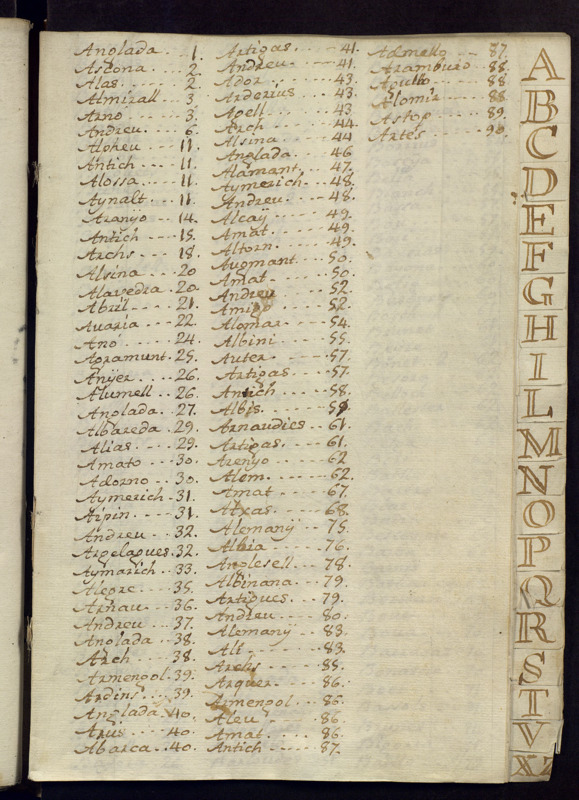 Anglada . . . 1.
Ascona . . . 2.
Alas . . . 2.
Almirall . . 3.
Arno . . . 3.
Andreu . . . 6.
Aloheu . . . 11.
Antich . . . 11.
Alossa . . . 11.
Aynalt . . . 11.
Aranyo . . . 14.
Antich . . . 15.
Archs . . . 18.
Alsina . . . 20
Alavedra . . 20.
Abril . . . 21.
Avaria . . . 22.
Ano . . . 24.
Agramunt . 25.
Anyer . . . 26.
Alumell . . 26.
Anglada . . 27.
Albareda . . 29.
Alias . . . 29.
Amato . . . 30.
Adorno . . . 30.
Aymerich . 31.
Aipin . . . 31.
Andreu . . . 32.
Argelagues . 32.
Aymarich . . 33.
Alegre . . . 35.
Arnau . . . 36.
Andreu . . . 37.
Anglada . . 38.
Arch . . . 38.
Armengol . 39.
Ardins . . . 39.
Anglada . . 40.
Arus . . . 40.
Abarca . . . 40.
Artigas . . . 41.
Andreu . . . 41.
Ador . . . 43.
Arderius . . 43.
Apell . . . 43.
Arch . . . 44.
Alsina . . . 44
Anglada . . . 46
Alamant . . 47.
Aymerich . . 48.
Andreu . . . 48.
Alcaÿ . . . 49.
Amat . . . 49.
Altorn . . . 49.
Augmant . . 50.
Amat . . . 50.
Andreu . . . 52.
Amigo . . . 52.
Alomar . . . 54.
Albini . . . 55.
Auter . . . 57.
Artigas . . . 57.
Antich . . . 58.
Albis . . . 59.
Arnaudies . . 61.
Artigas . . . 61.
Arenyo . . . 62
Alem . . . 62.
Amat . . . 67.
Atxas . . . 68.
Alemanÿ . . 75.
Albia . . . 76.
Anglesell . . 78.
Albinana . . 79.
Artigues . . . 79.
Andreu . . . 80.
Alemany . . 83.
Alt . . . 83.
Arells . . . 85.
Arquer . . . 86.
Armengol . . 86.
Aleu . . . 86.
Amat . . . 86.
Antich . . . 87.
Admallo . . . 87.
Aramburo . . 88.
Apullo . . . 88
Alomir . . . 88
Astop . . . 89.
Artés . . . 90.
A
B
C
D
E
F
G
H
I
L
M
N
O
P
Q
R
S
T
V
X Z